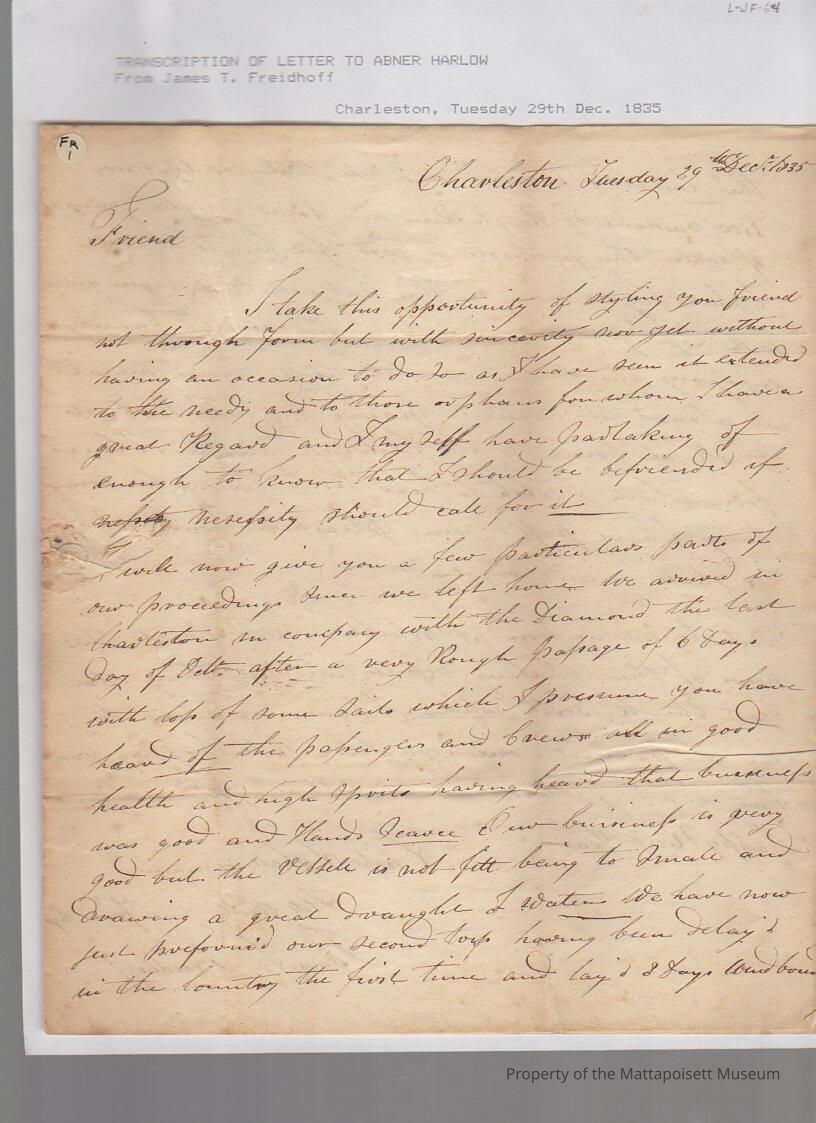 L-JF-64
TRANSCRIPTION OF LETTER TO ABNER HARLOW
From James T. Freidhoff
Charleston, Tuesday 29th Dec. 1835
FR
1
Charleston Tuesday 29th Decr. 1835
Friend
I take this opportunity of styling you friend
not through form but with sincerity nor yet without
having an occasion to do so as I have seen it extended
to the needy and to those orphans for whom I have a
great Regard and I my self have partaking of
enough to know that I should be befriended if
nessesity should call for it
I will now give you a few particulars parts of
our proceedings since we left home We arrived in
Charleston in company with the Diamond the last
Day of Octr. after a very Rough passage of 6 Days
with loss of some sails which I presume you have
heard of the passengers and Crews all in good
health and high spirits having heard that bussiness
was good and Hands scarce Our bussiness is very
good but the Vessele is not fitt being to smale and
drawing a great draught of Water We have now
just preformd our second trip having been delay'd
in the Country the first time and lay'd 8 Days Windbound
Property of the Mattapoisett Museum